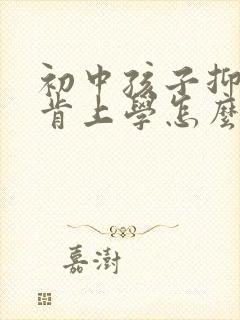 初中孩子抑
肯上學怎麼
嘉澍